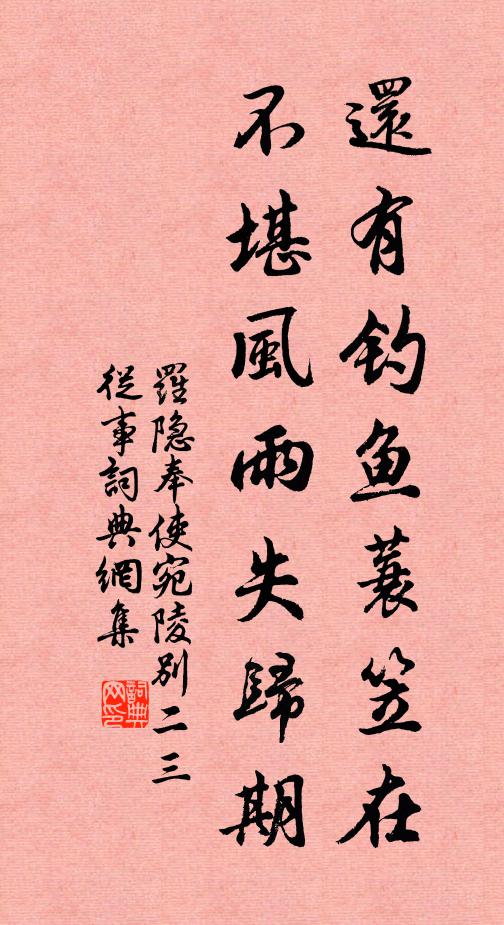 還有钓鱼蓑笠在
不堪風雨失歸期
羅隐奉使宛陵别二三
從事詞典網集
詞典网印